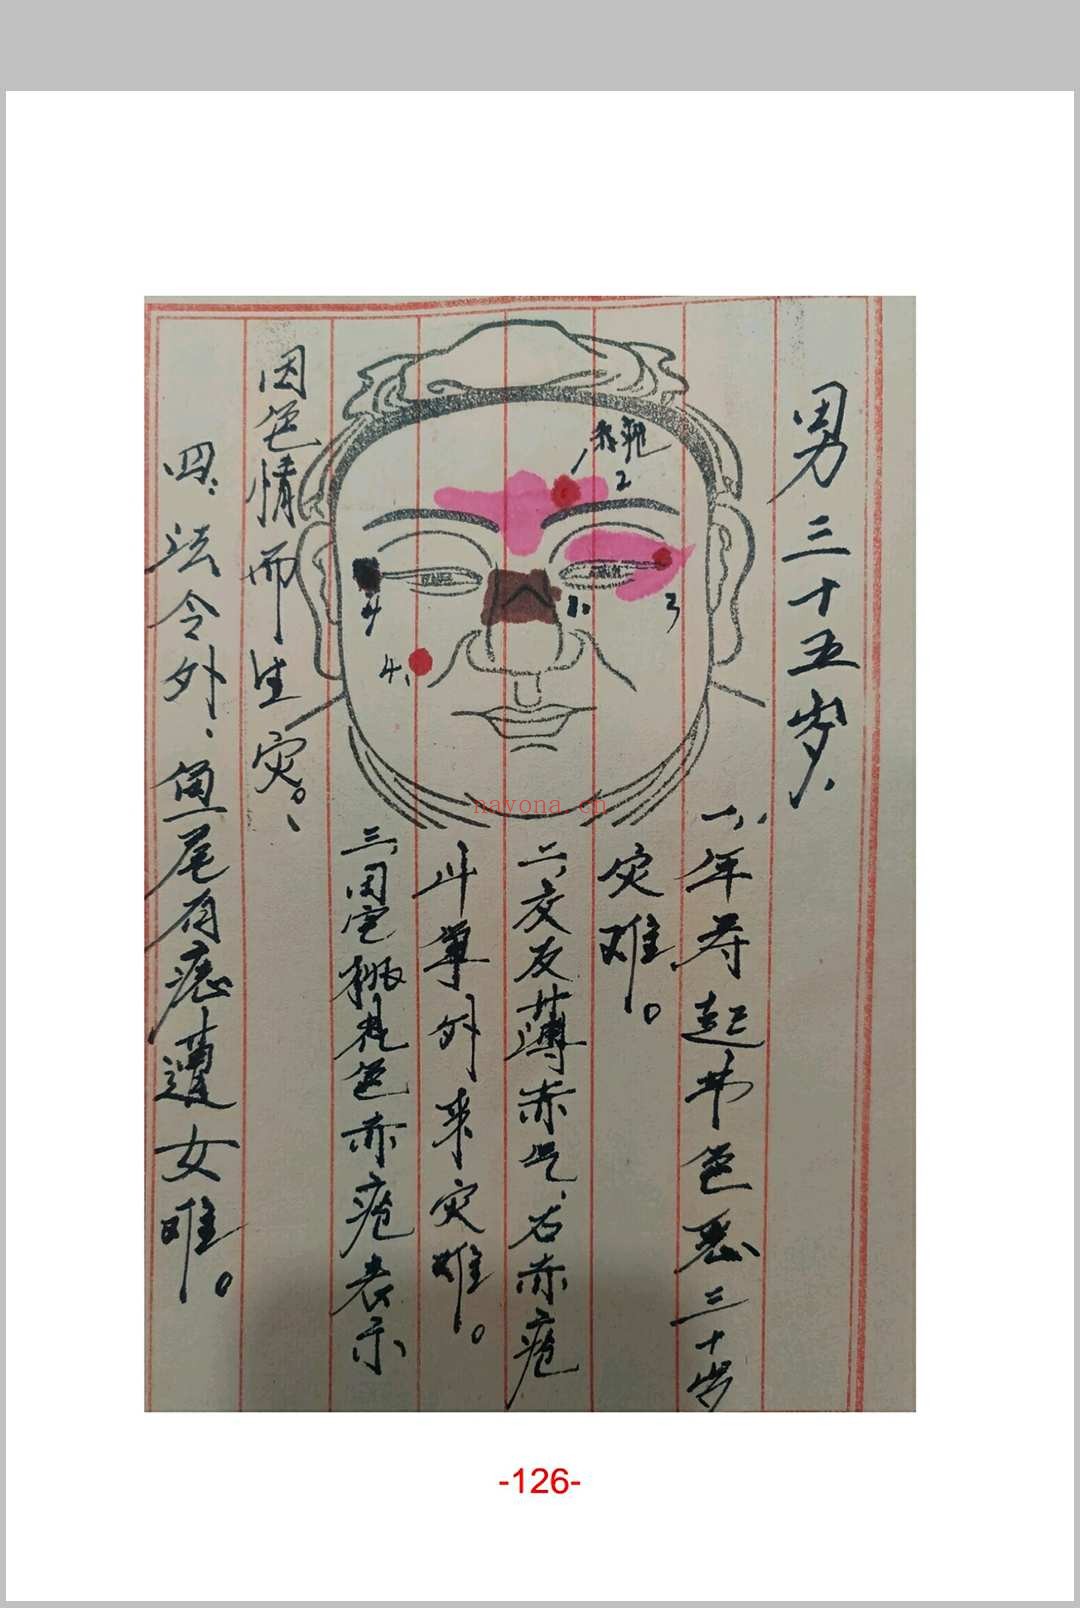 男三十五岁、
一、年寿起节色恶三十岁
灾难。
二、交友薄赤气、右赤疮
斗尊外来灾难。
三、田宅桃花色赤疮表示
因色情而生灾。、
四、法令外、鱼尾有痣遭女难。
2
1、
3
4
4、
nayona.cn
-126-